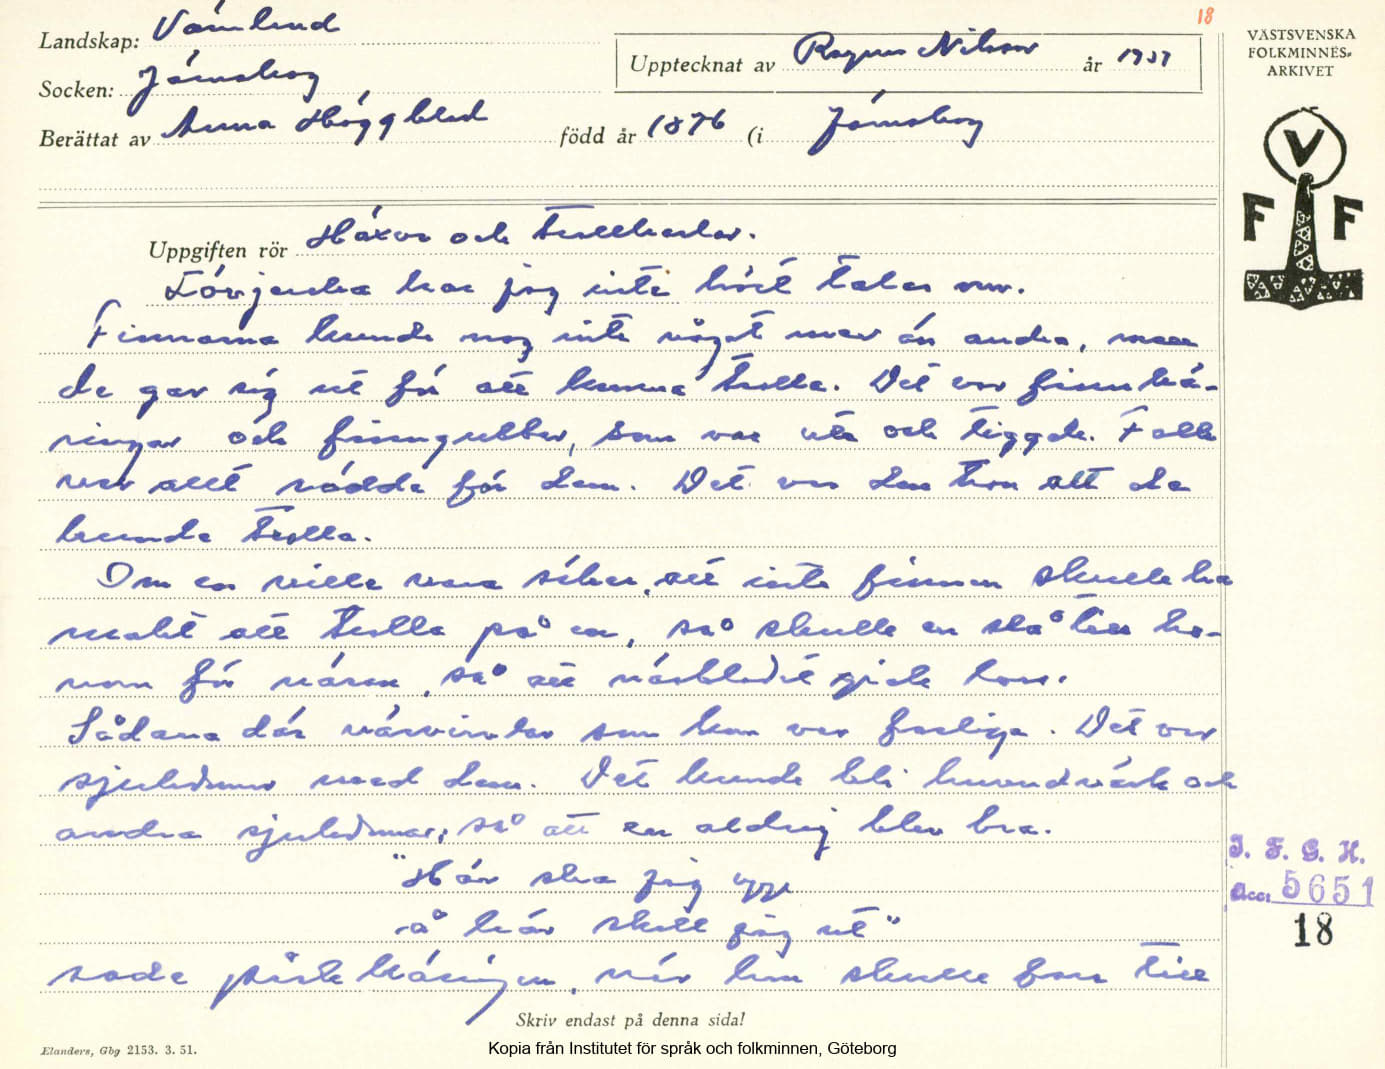 18
Landskap: Värmland
Socken: Järnskog
Berättat av Anna Häggblad född år 1876 (i Järnskog
Upptecknat av Ragnar Nilsson år 1957
VÄSTSVENSKA
FOLKMINNES-
ARKIVET
V
F F
Uppgiften rör Häxor och trollkarlar.
Lövjerska har jag inte hört talas om.
Finnarna kunde nog inte något mer än andra, men
de gav sig ut för att kunna trolla. Det var finnkä-
ringar och finngubbar, som var ute och tiggde. Folk
var allt rädda för dem. Det var den tron att de
kunde trolla.
Om en ville vara säker, att inte finnen skulle ha
makt att trolla på en, så skulle en slå till ho-
nom för näsan, så att näsblodet gick hos.
Sådana där väsvindar som kom var farliga. Det var
sjukdomar med dem. Det kunde bli huvudvärk och
andra sjukdomar, så att en aldrig blev bra.
"Här ska jag upp
å här skall jag ut"
sade påskkäringen, när hon skulle fara till
Skriv endast på denna sida!
Elanders, Gbg 2153. 3. 51.
I. F. G. H.
Acc. 5651
18
Kopia från Institutet för språk och folkminnen, Göteborg